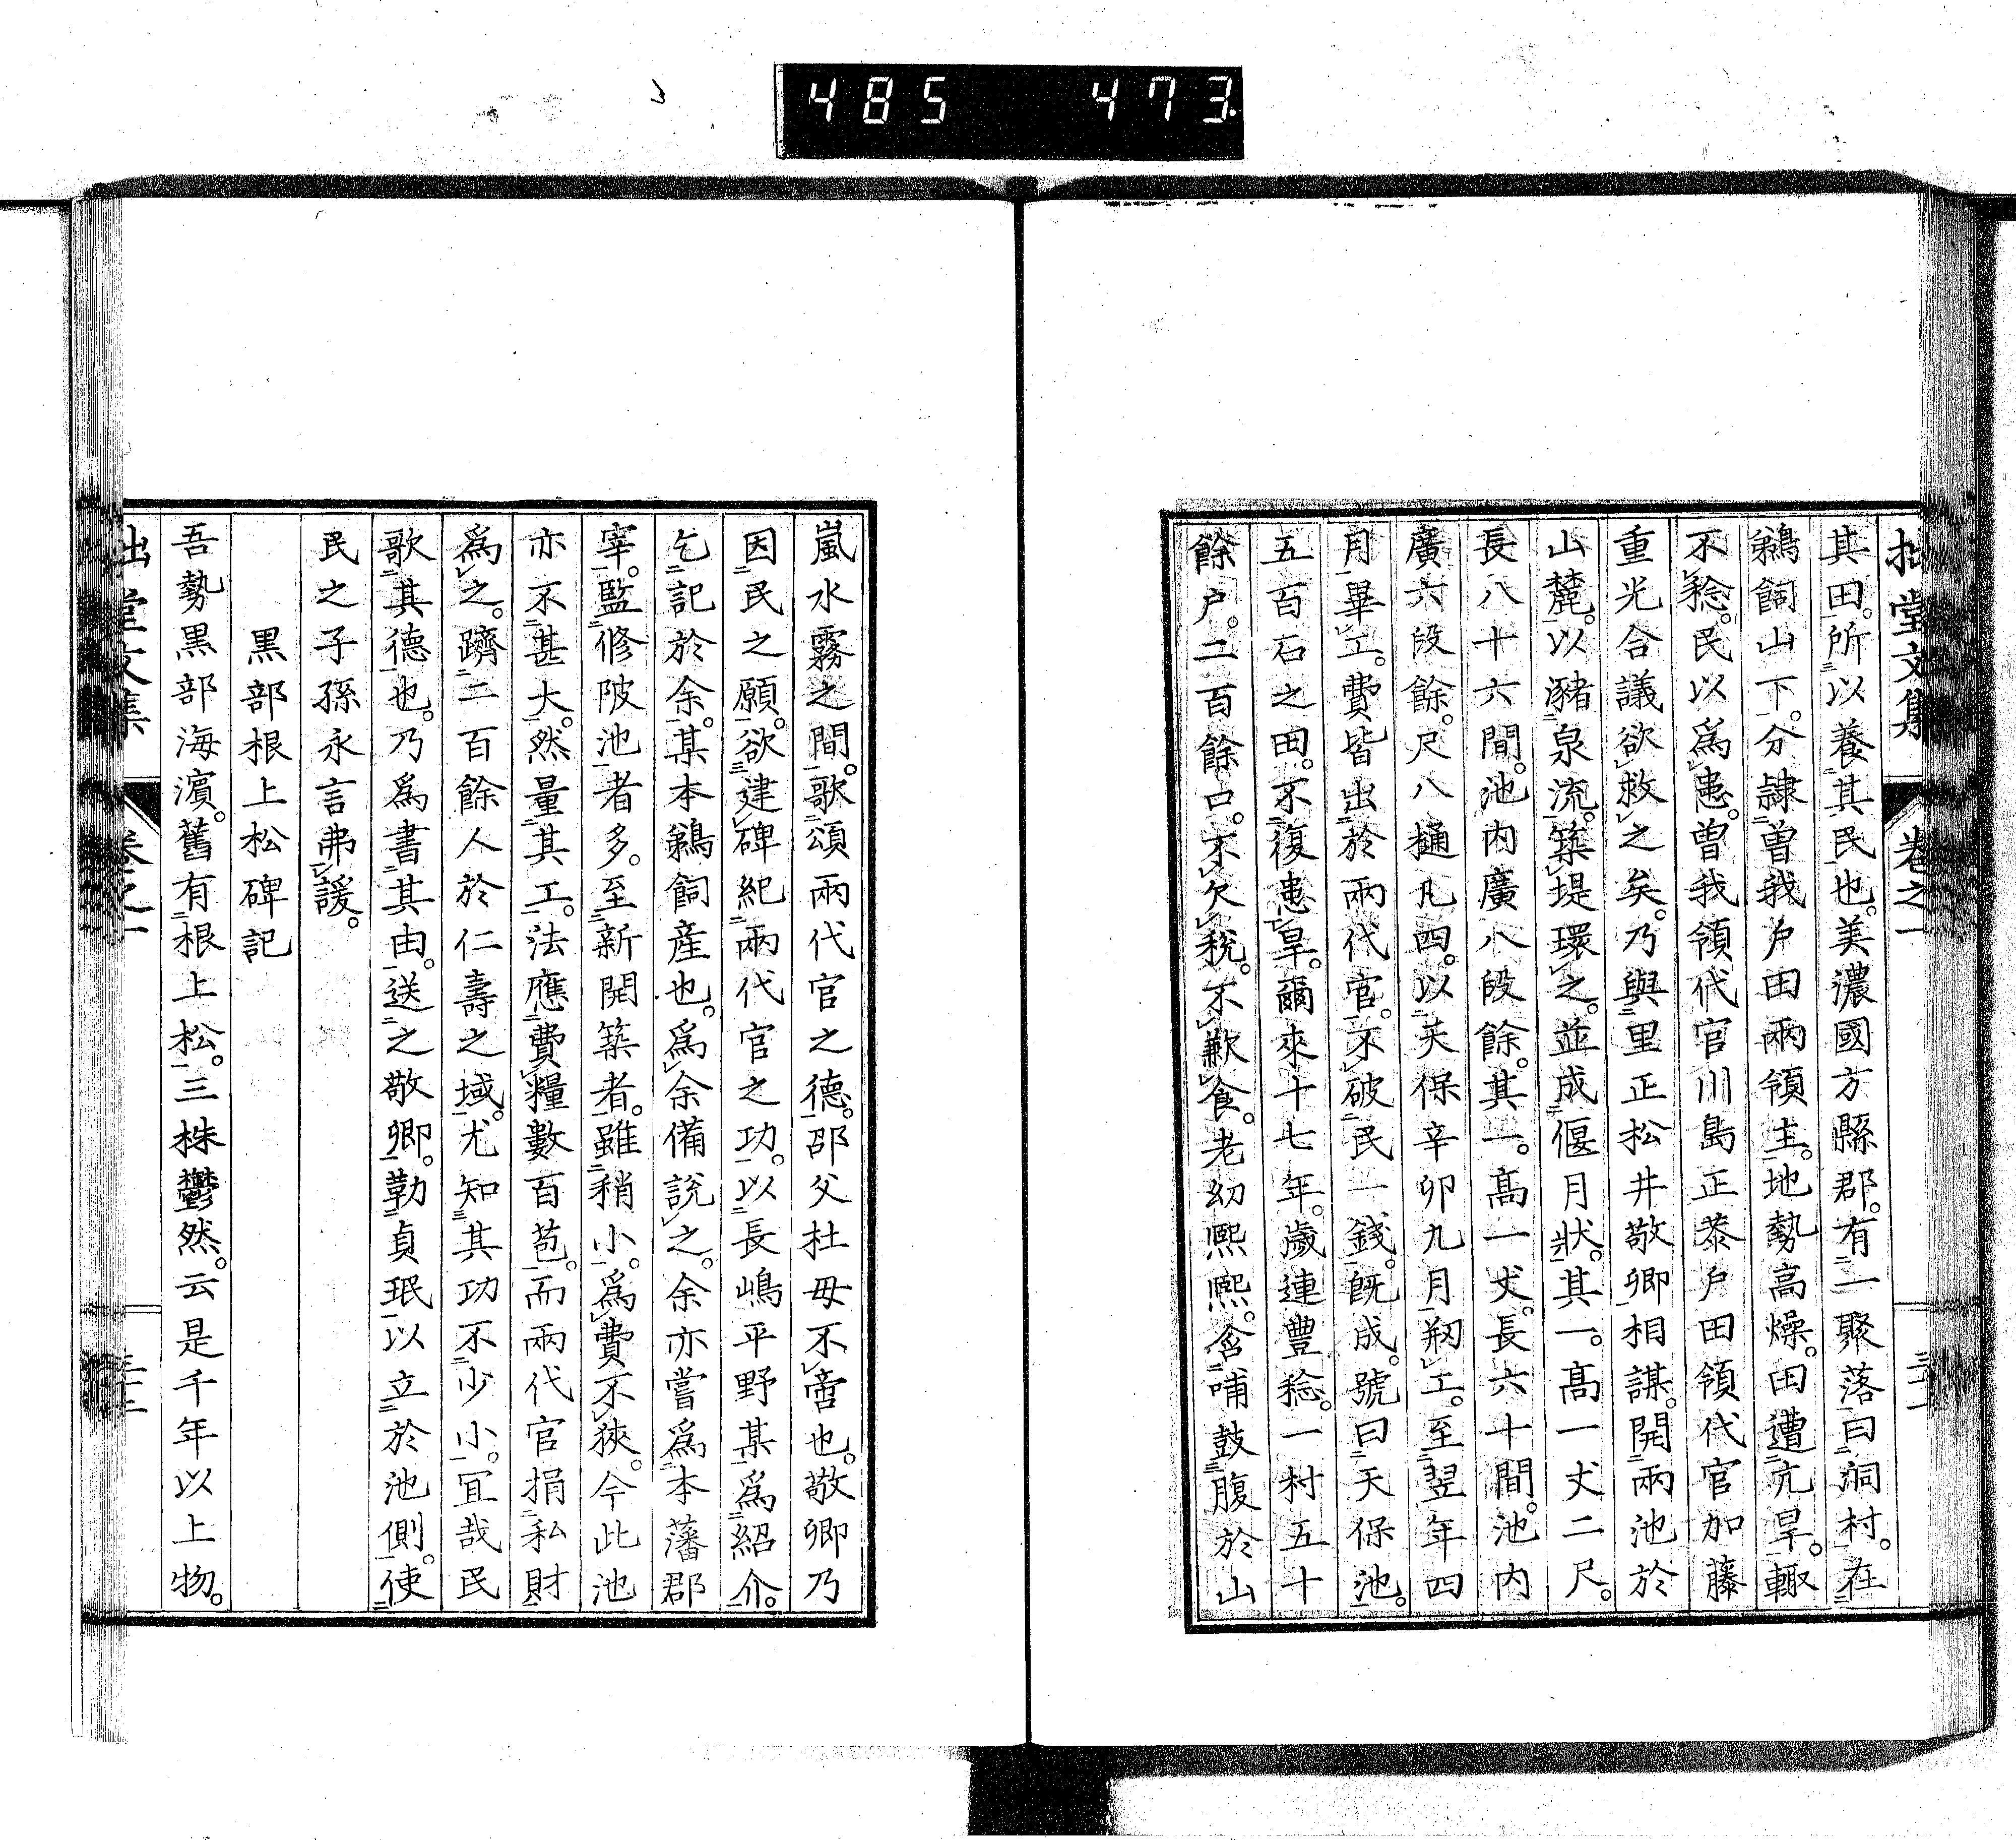 485 473
拙堂文集 卷之一
其田。所以養其民也。美濃國方縣郡。有一聚落曰洞村。在
鵜飼山下。分隷曽我戶田兩領主。地勢高燥。田遭亢旱。輙
不稔。民以爲患。曽我領代官川島正㤗戶田領代官加藤
重光合議欲救之矣。乃與里正松井敬卿相謀。開兩池於
山麓。以瀦泉流。築堤環之。並成偃月狀。其一。髙一丈二尺。
長八十六間。池內廣八段餘。其一。髙一丈。長六十間。池內
廣六段餘。尺八樋凡四。以天保辛卯九月剏工。至翌年四
月畢工。費皆出於兩代官。不破民一錢。旣成。號曰天保池。
五百石之田。不復患旱。爾來十七年。歲連豐稔。一村五十
餘戶。二百餘口。不欠稅。不歉食。老幼熙熙。含哺鼓腹於山
嵐水霧之間。歌頌兩代官之德。邵父杜母不啻也。敬卿乃
因民之願。欲建碑紀兩代官之功。以長嶋平野某爲紹介。
乞記於余。某本鵜飼產也。爲余備說之。余亦嘗爲本藩郡
宰。監修陂池者多。至新開築者。雖稍小。爲費不狹。今此池
亦不甚大。然量其工。法應費糧數百苞。而兩代官捐私財
爲之。躋二百餘人於仁壽之域。尤知其功不少小。宜哉民
歌其德也。乃爲書其由。送之敬卿。勒貞珉以立於池側。使
民之子孫永言弗諼。
黑部根上松碑記
吾勢黑部海濱。舊有根上松。三株鬱然。云是千年以上物。
拙堂文集 卷之一